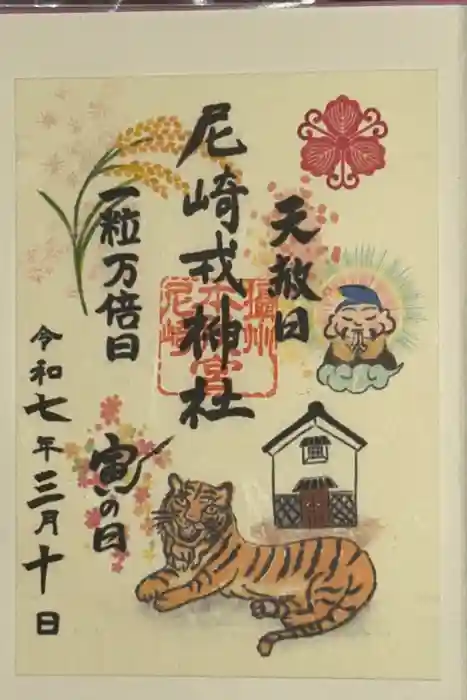 天赦日
尼崎戎神社
一粒万倍日
寅の日
令和七年三月十日
攝州
本宮
尼崎